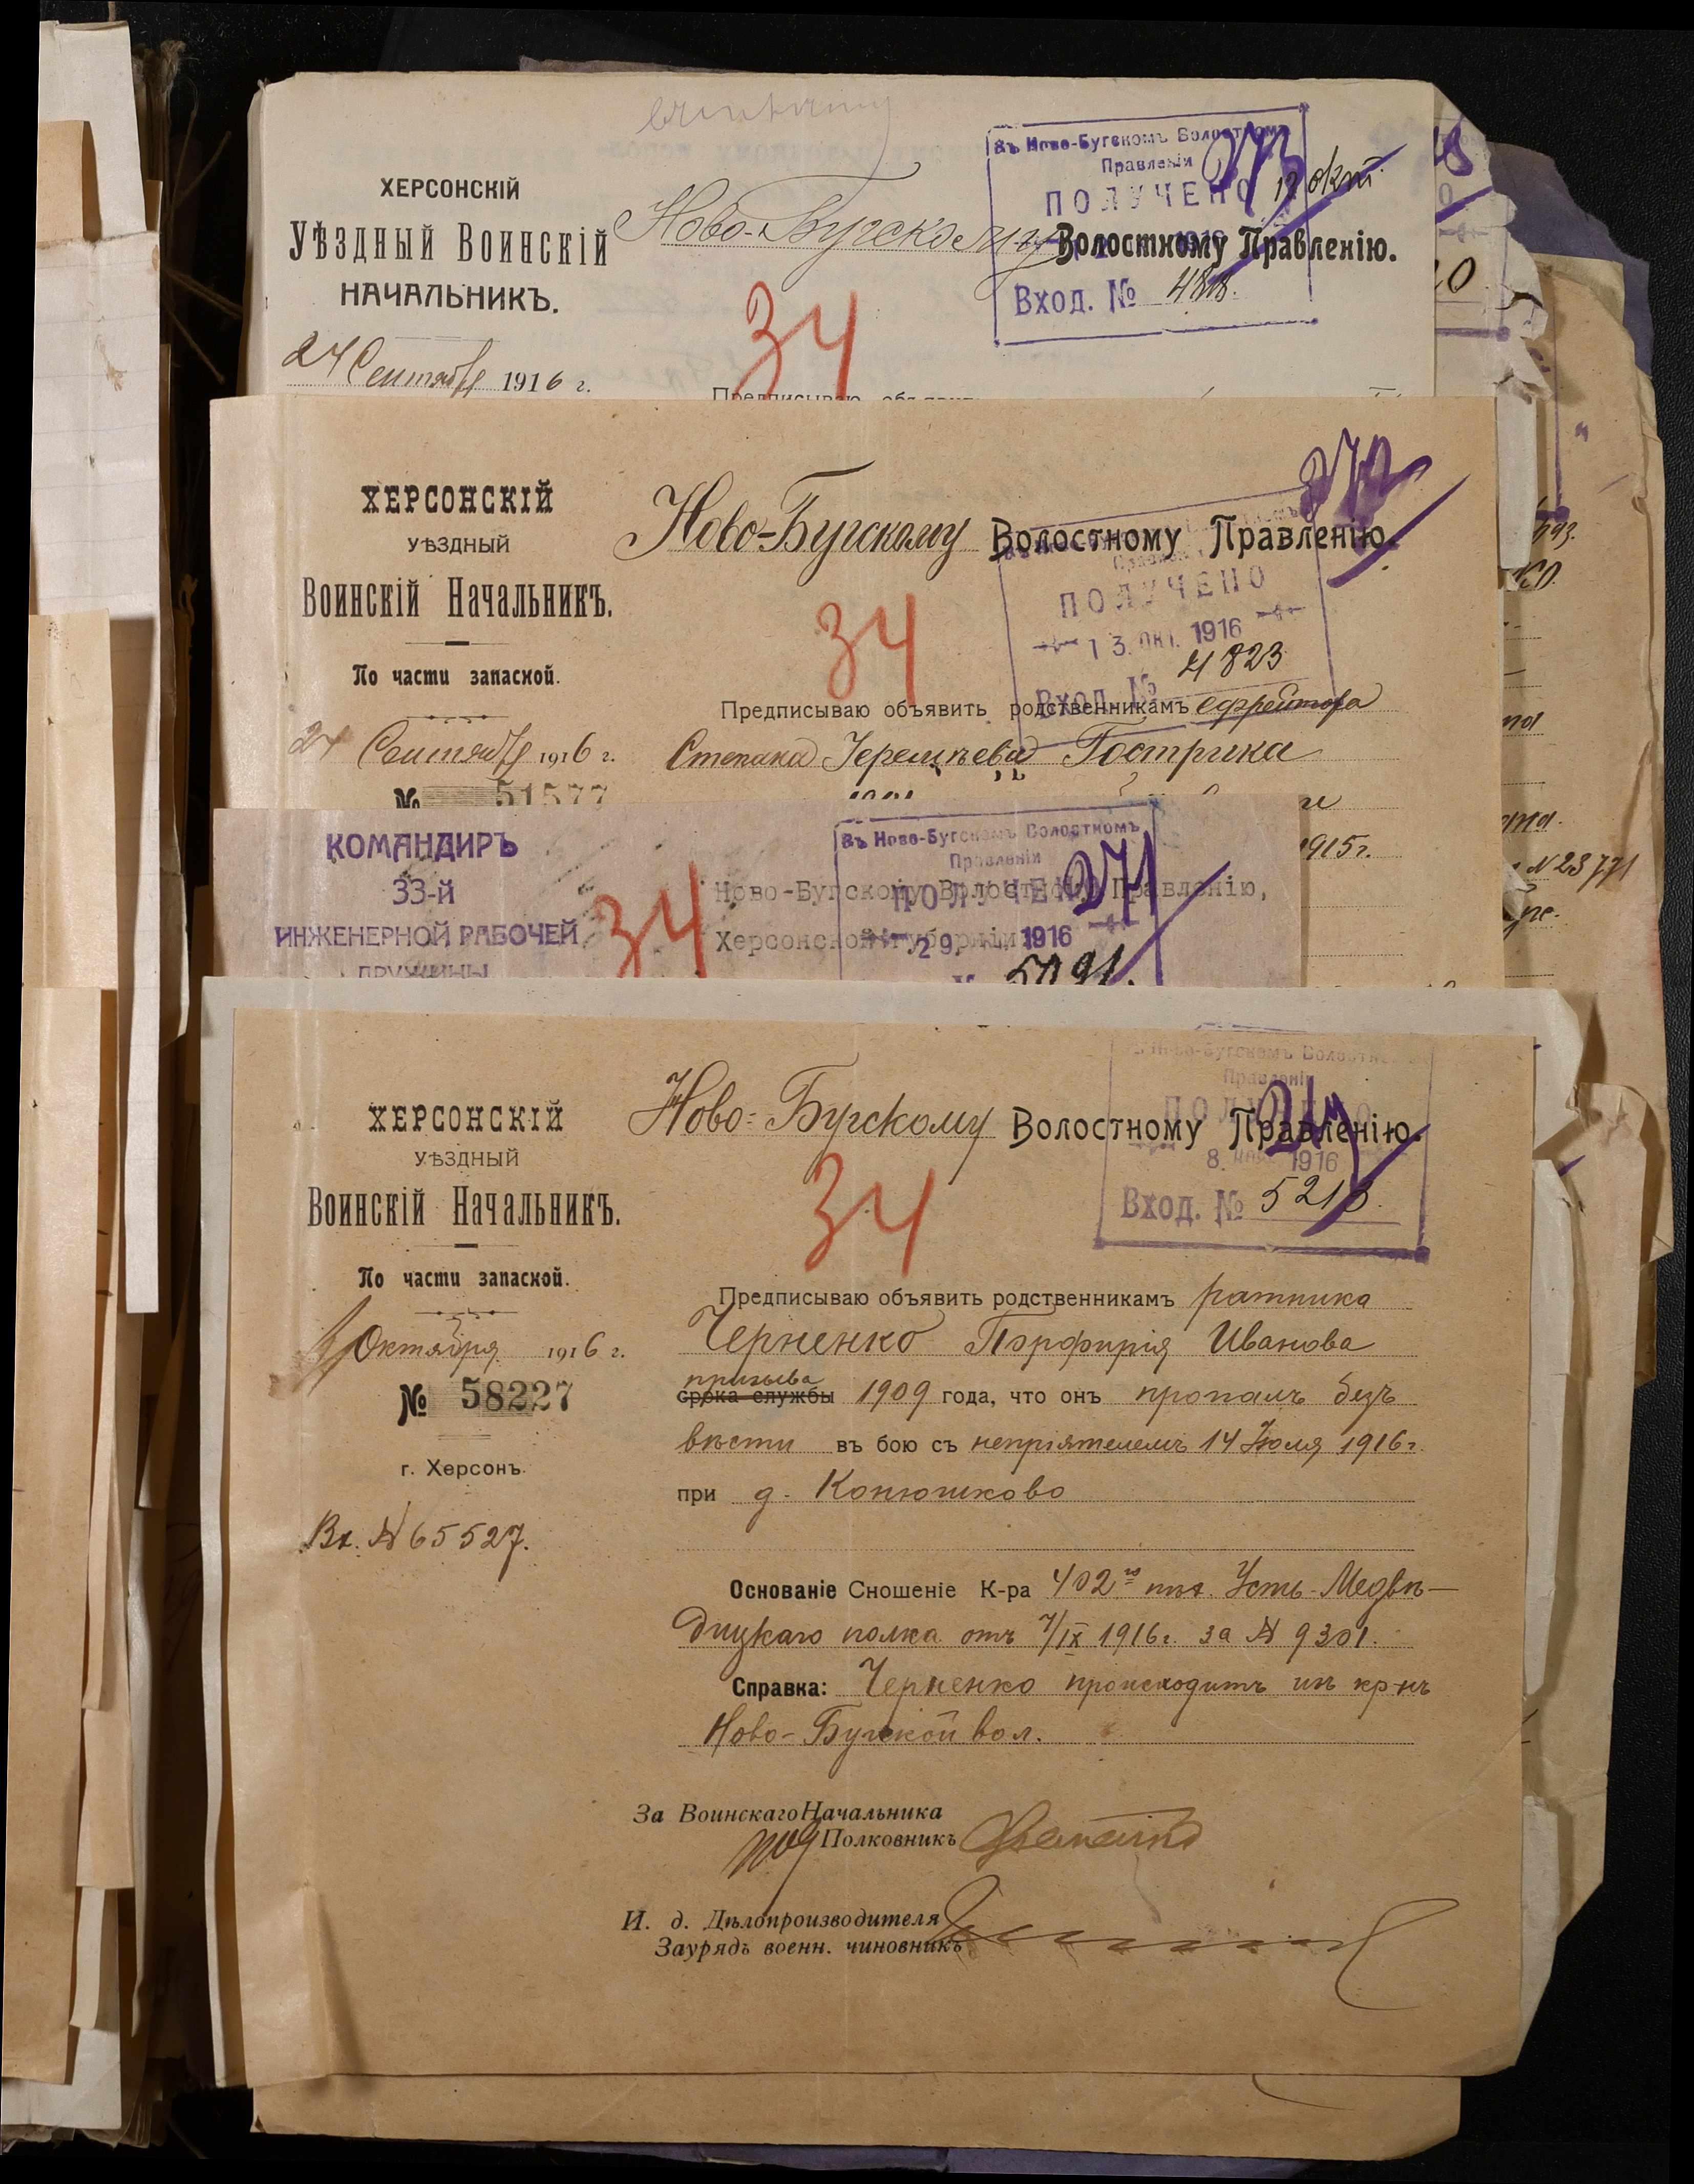 ХЕРСОНСКІЙ
УѢЗДНЫЙ ВОИНСКІЙ
НАЧАЛЬНИКЪ.
24 Сентября 1916 г.
Ново-Бугскому Волостному Правленію.
34
Въ Ново-Бугскомъ Волостномъ
Правленіи
ПОЛУЧЕНО
12 окт.
1916
Вход. №
Предписываю
ХЕРСОНСКІЙ
УѢЗДНЫЙ
ВОИНСКІЙ НАЧАЛЬНИКЪ.
По части запасной.
24 Сентября 1916 г.
№ 51577
Ново-Бугскому Волостному Правленію.
272
34
Правленіи
ПОЛУЧЕНО
13. ОКТ. 1916
Вход. № 4823
Предписываю объявить родственникамъ ефрейтора
Степана Гострика
1915 г.
№ 23771
КОМАНДИРЪ
33-й
ИНЖЕНЕРНОЙ РАБОЧЕЙ
ДРУЖИНЫ
34
Ново-Бугскому Волостному Правленію,
Херсонской губерніи
Въ Ново-Бугскомъ Волостномъ
Правленіи
ПОЛУЧЕНО
271
29. 1916
5091.
ХЕРСОНСКІЙ
УѢЗДНЫЙ
ВОИНСКІЙ НАЧАЛЬНИКЪ.
По части запасной.
Октября 1916 г.
№ 58227
г. Херсонъ.
Вх. № 65527.
Ново-Бугскому Волостному Правленію.
34
Ново-Бугскомъ Волостномъ
Правленіи
ПОЛУЧЕНО
8. 1916
Вход. № 5213.
Предписываю объявить родственникамъ ратника
Черненко Порфирія Иванова
призыва
срока службы 1909 года, что онъ пропалъ безъ
вѣсти въ бою съ непріятелемъ 14 Іюля 1916 г.
при д. Конюшково
Основаніе Сношеніе К-ра 402го пѣх. Усть-Медвѣ-
дицкаго полка отъ 7/IX 1916 г. за № 9301.
Справка: Черненко происходитъ изъ кр-нъ
Ново-Бугской вол.
За Воинскаго Начальника
Полковникъ
И. д. Дѣлопроизводителя
Заурядъ военн. чиновникъ